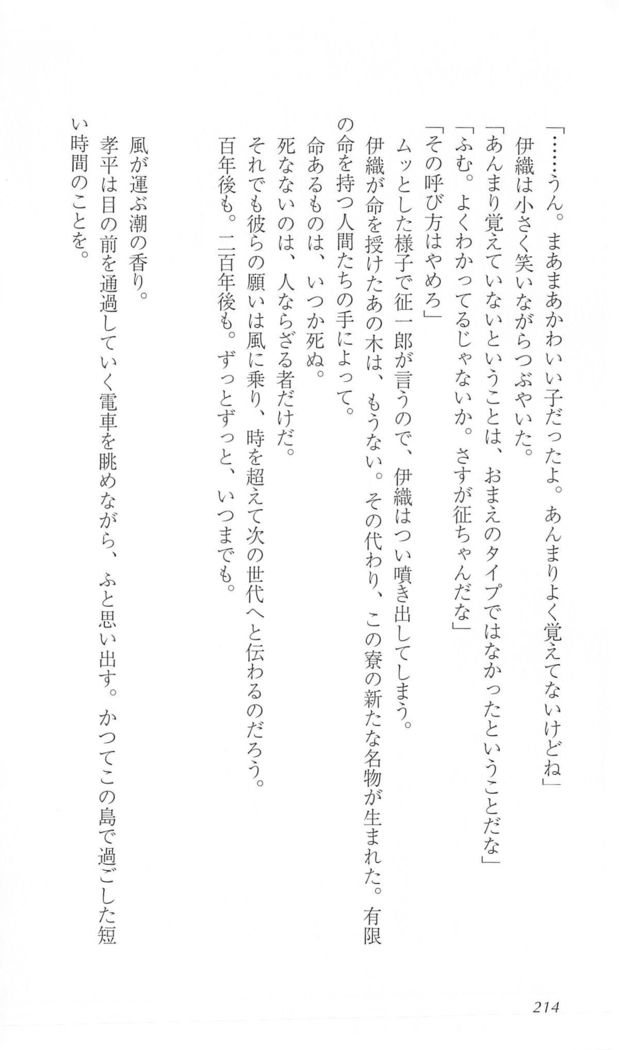 「……うん。まあまあかわいい子だったよ。あんまりよく覚えてないけどね」
伊織は小さく笑いながらつぶやいた。
「あんまり覚えていないということは、おまえのタイプではなかったということだな」
「ふむ。よくわかってるじゃないか。さすが征ちゃんだな」
「その呼び方はやめろ」
ムッとした様子で征一郎が言うので、伊織はつい噴き出してしまう。
伊織が命を授けたあの木は、もうない。その代わり、この寮の新たな名物が生まれた。有限
の命を持つ人間たちの手によって。
命あるものは、いつか死ぬ。
死なないのは、人ならざる者だけだ。
それでも彼らの願いは風に乗り、時を超えて次の世代へと伝わるのだろう。
百年後も。二百年後も。ずっとずっと、いつまでも。
風が運ぶ潮の香り。
孝平は目の前を通過していく電車を眺めながら、ふと思い出す。かつてこの島で過ごした短
い時間のことを。
214